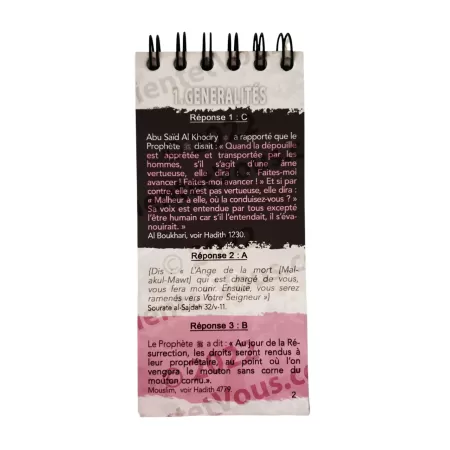 1.GENERALITÉS
Réponse 1 : C
Abu Saïd Al Khodry ﷺ a rapporté que le
Prophète ﷺ disait : « Quand la dépouille
est apprêtée et transportée par les
hommes, s'il s'agit d'une âme
vertueuse, elle dira : « Faites-moi
avancer ! Faites-moi avancer ! » Et si par
contre, elle n'est pas vertueuse, elle dira :
« Malheur à elle, où la conduisez-vous ? »
Sa voix est entendue par tous excepté
l'être humain car s'il l'entendait, il s'éva-
nouirait. »
Al Boukhari, voir Hadith 1230.
Réponse 2 : A
(Dis : « L'Ange de la mort [Mal-
akul-Mawt] qui est chargé de vous,
vous fera mourir. Ensuite, vous serez
ramenés vers Votre Seigneur »)
Sourate al-Sajdah 32/v-11.
Réponse 3 : B
Le Prophète ﷺ a dit : « Au jour de la Ré-
surrection, les droits seront rendus à
leur propriétaire, au point où l'on
vengera le mouton sans corne du
mouton cornu.».
Mouslim, voir Hadith 4779.
2